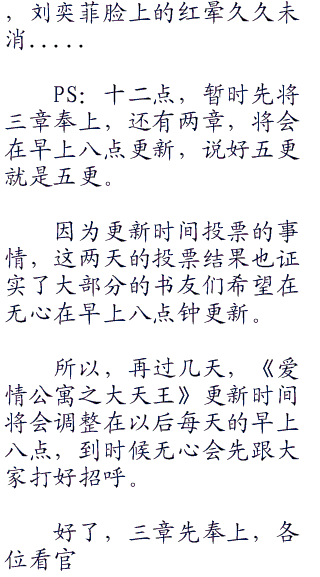 ，刘奕菲脸上的红晕久久未
消.....
PS：十二点，暂时先将
三章奉上，还有两章，将会
在早上八点更新，说好五更
就是五更。
因为更新时间投票的事
情，这两天的投票结果也证
实了大部分的书友们希望在
无心在早上八点钟更新。
所以，再过几天，《爱
情公寓之大天王》更新时间
将会调整在以后每天的早上
八点，到时候无心会先跟大
家打好招呼。
好了，三章先奉上，各
位看官